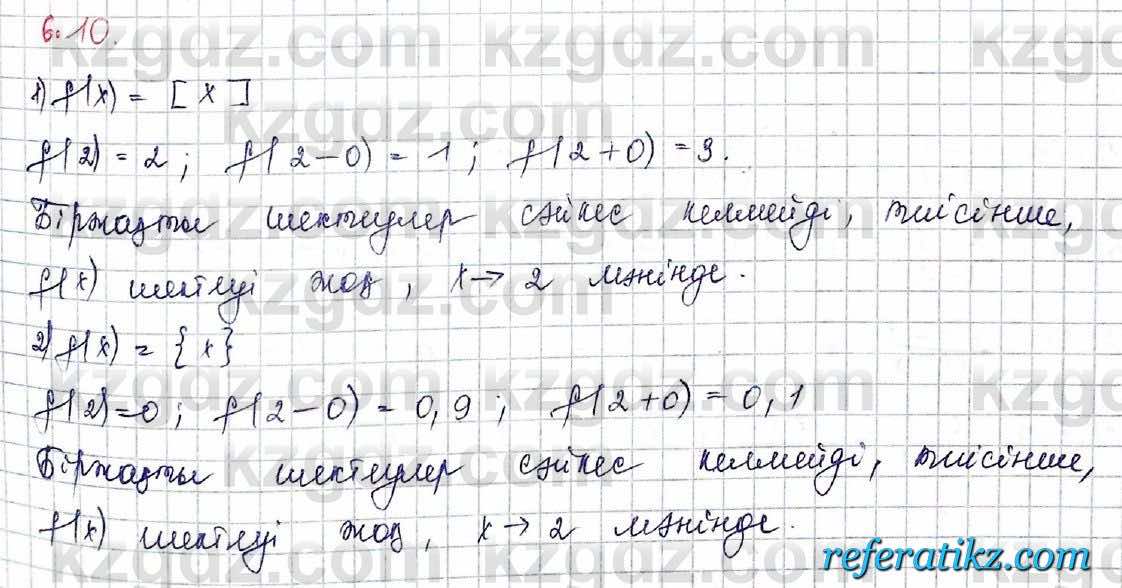 6.10.
1) f(x) = [x]
f(2) = 2; f(2-0) = 1; f(2+0) = 3.
Біржақты шектеулер сәйкес келмейді, тиісінше,
f(x) шектеуі жоқ, x → 2 мәнінде.
2) f(x) = {x}
f(2) = 0; f(2-0) = 0,9; f(2+0) = 0,1
Біржақты шектеулер сәйкес келмейді, тиісінше,
f(x) шектеуі жоқ, x → 2 мәнінде.
kzgdz.com
referatikz.com